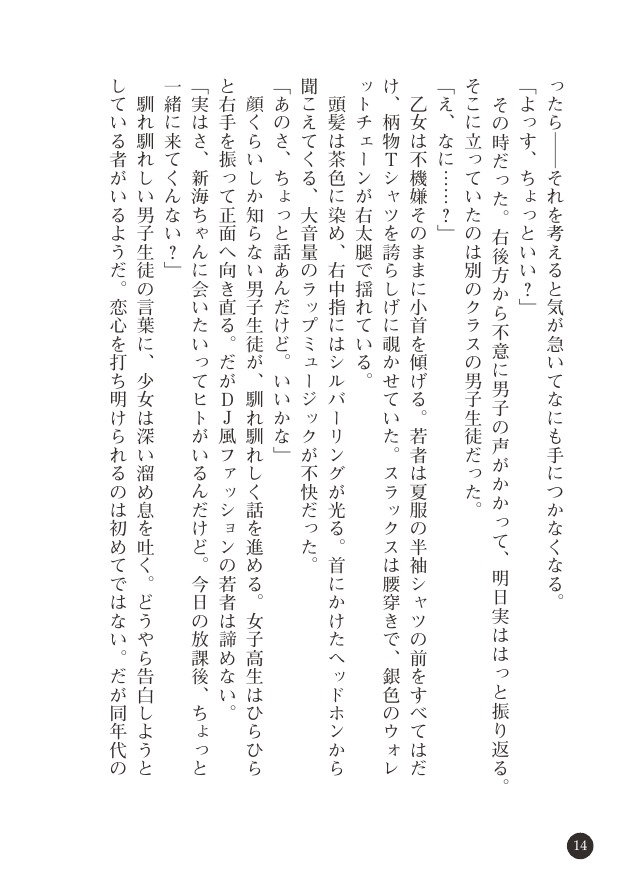 ったら――それを考えると気が急いてなにも手につかなくなる。
「よっす、ちょっといい？」
その時だった。右後方から不意に男子の声がかかって、明日実ははっと振り返る。
そこに立っていたのは別のクラスの男子生徒だった。
「え、なに……？」
乙女は不機嫌そのままに小首を傾げる。若者は夏服の半袖シャツの前をすべてはだ
け、柄物Ｔシャツを誇らしげに覗かせていた。スラックスは腰穿きで、銀色のウォレ
ットチェーンが右太腿で揺れている。
頭髪は茶色に染め、右中指にはシルバーリングが光る。首にかけたヘッドホンから
聞こえてくる、大音量のラップミュージックが不快だった。
「あのさ、ちょっと話あんだけど。いいかな」
顔くらいしか知らない男子生徒が、馴れ馴れしく話を進める。女子高生はひらひら
と右手を振って正面へ向き直る。だがＤＪ風ファッションの若者は諦めない。
「実はさ、新海ちゃんに会いたいってヒトがいるんだけど。今日の放課後、ちょっと
一緒に来てくんない？」
馴れ馴れしい男子生徒の言葉に、少女は深い溜め息を吐く。どうやら告白しようと
している者がいるようだ。恋心を打ち明けられるのは初めてではない。だが同年代の
14